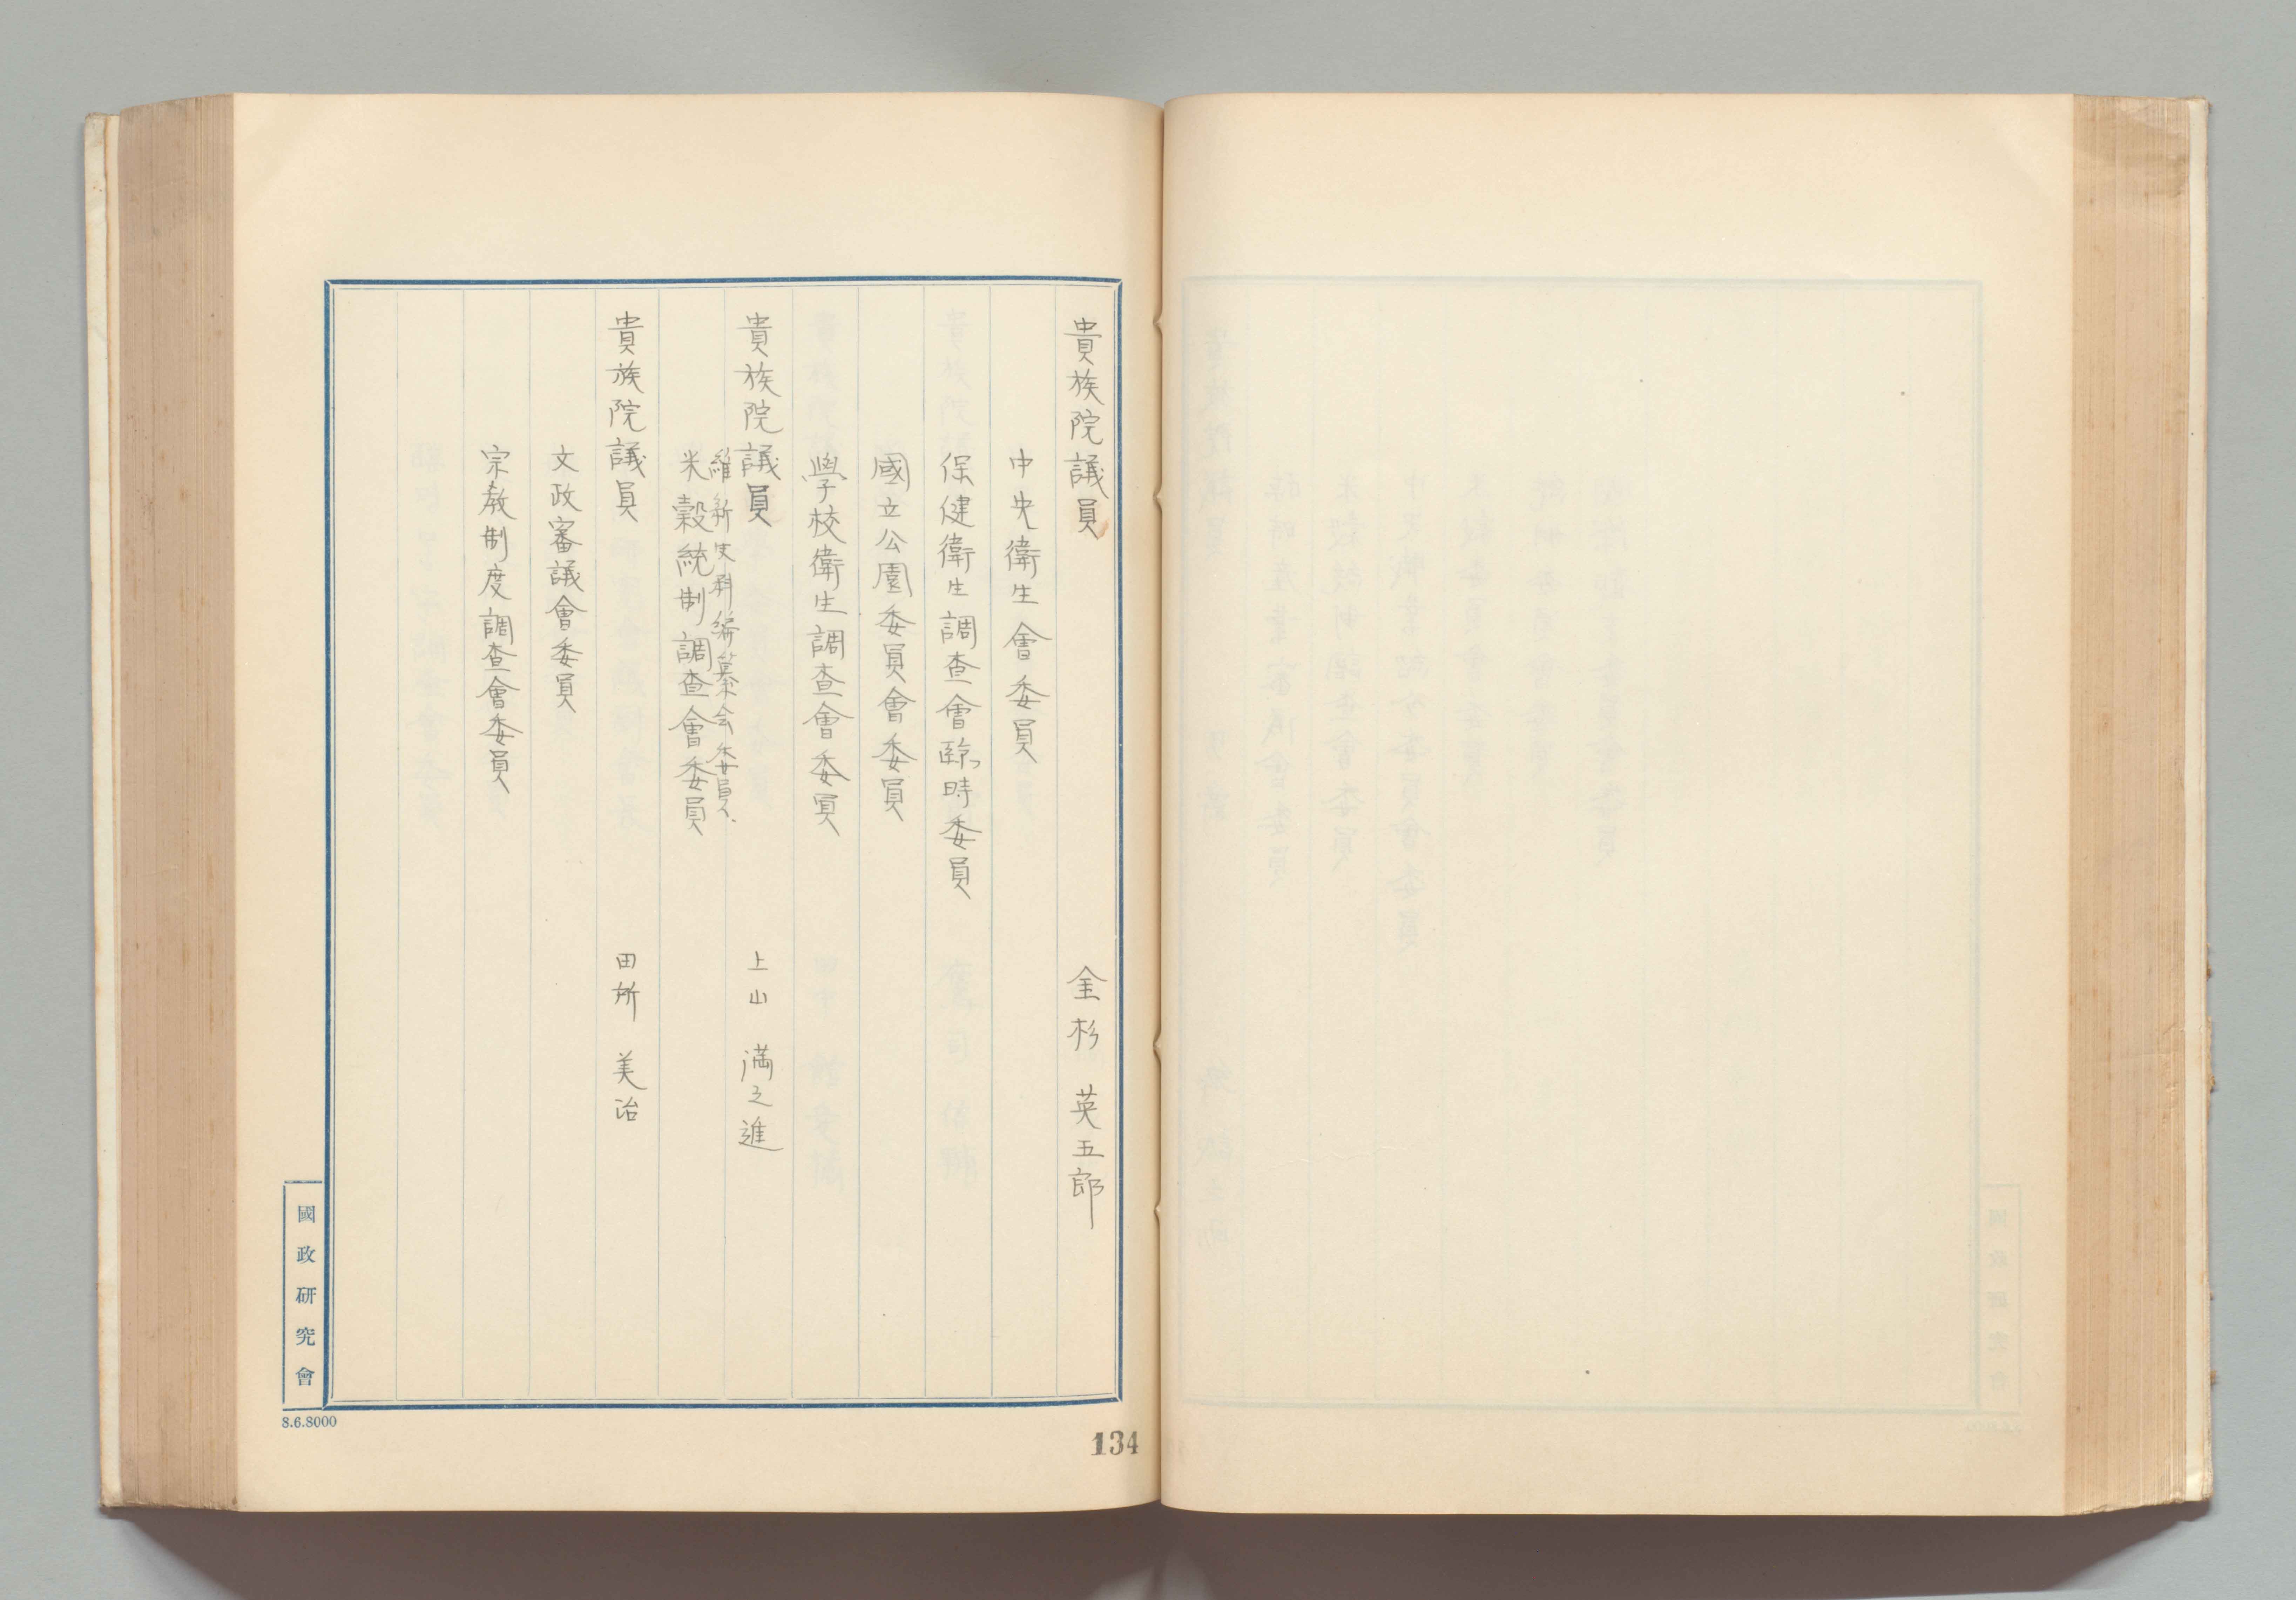 貴族院議員 金杉 英五郎
中央衛生會委員
保健衛生調查會臨時委員
國立公園委員會委員
學校衛生調查會委員
貴族院議員 上山 満之進
維新史料編纂会委員、
米穀統制調查會委員
貴族院議員 田所 美治
文政審議會委員
宗教制度調查會委員
國政研究會
8.6.8000
134